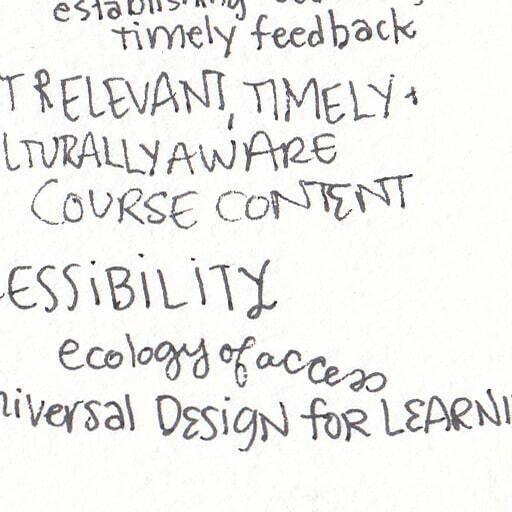 establishing
timely feedback
T RELEVANT, TIMELY +
LTURALLY AWARE
COURSE CONTENT
ESSIBILITY
ecology of access
niversal DESIGN for LEARNI